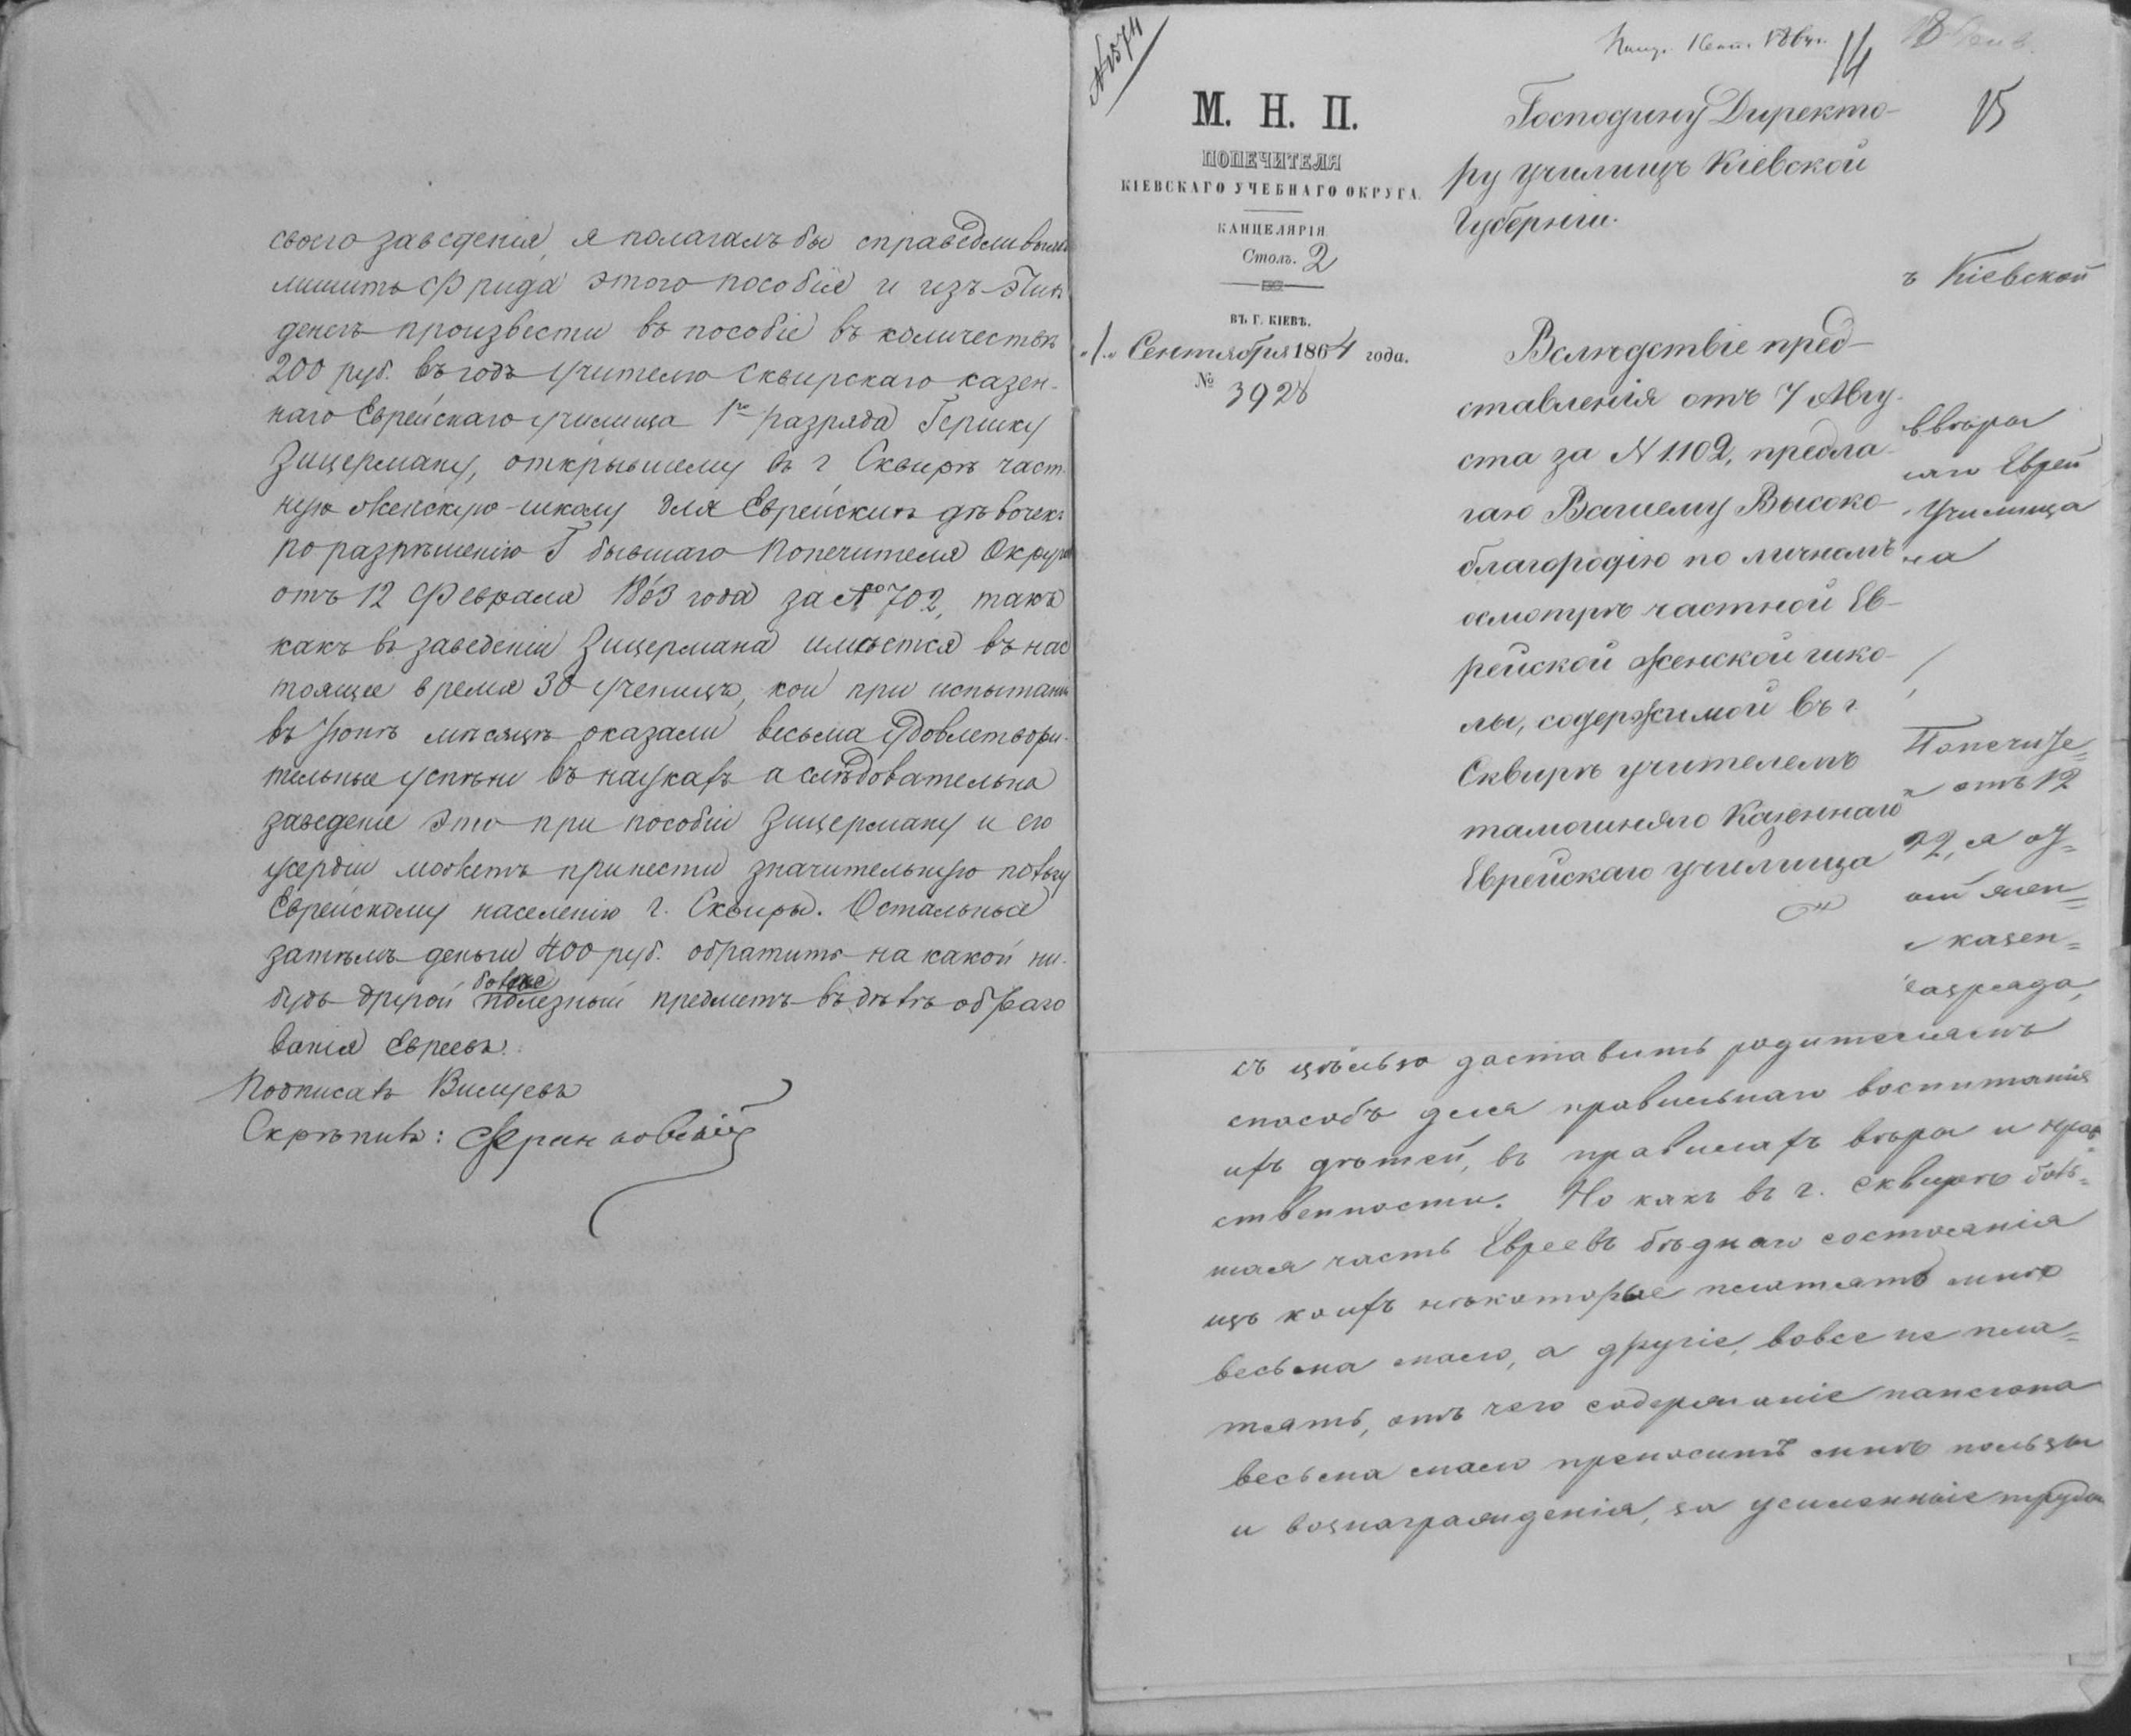 своего заведенія, я полагалъ бы справедливымъ
лишить Фрида этого пособія и изъ этихъ
денегъ произвести въ пособіе въ количествѣ
200 руб. въ годъ учителю Сквирскаго казен-
наго Еврейскаго училища 1го разряда Гершку
Зицерману, открывшему въ г Сквирѣ част-
ную женскую школу для Еврейскихъ дѣвочекъ
по разрѣшенію Г бывшаго Попечителя Округа
отъ 12 Февраля 1863 года за № 702, такъ
какъ въ заведеніи Зицермана имѣется въ нас
тоящее время 30 ученицъ, кои при испытаніи
въ Іюнѣ мѣсяцѣ оказали весьма удовлетвори-
тельные успѣхи въ наукахъ а слѣдовательно
заведеніе это при пособіи Зицерману и его
усердіи можетъ принести значительную пользу
Еврейскому населенію г. Сквиры. Остальные
затѣмъ деньги 400 руб. обратить на какой ни-
будь другой болѣе полезный предметъ въ дѣлѣ образо
ванія Евреевъ.
Подписалъ
Скрѣпилъ:
№ 1574
1864г.
14
18
15
М. Н. П.
ПОПЕЧИТЕЛЯ
КІЕВСКАГО УЧЕБНАГО ОКРУГА.
КАНЦЕЛЯРІЯ
Столъ. 2
ВЪ Г. КІЕВѢ.
"1" Сентября 1864 года.
№ 3928
Господину Директо-
ру училищъ Кіевской
Губерніи.
Вслѣдствіе пред-
ставленія отъ 7 Авгу-
ста за N 1102, предла-
гаю Вашему Высоко-
благородію по личномъ
осмотрѣ частной Ев-
рейской женской шко-
лы, содержимой въ г.
Сквирѣ учителемъ
тамошняго Казеннаго
Еврейскаго училища
ъ Кіевской
аго Еврей
Училища
на
Попечите=
отъ 12
02, я
жен=
казен=
разряда,
съ цѣлью доставить родителямъ
способъ для правильнаго воспитанія
ихъ дѣтей, въ правилахъ вѣры и нрав-
ственности. Но какъ въ г. Сквирѣ боль=
шая часть Евреевъ бѣднаго состоянія
изъ коихъ нѣкоторые платятъ мнѣ
весьма мало, а другіе, вовсе не пла=
тятъ, отъ чего содержаніе пансіона
весьма мало преноситъ мнѣ пользы
и вознагражденія, за усиленные труды